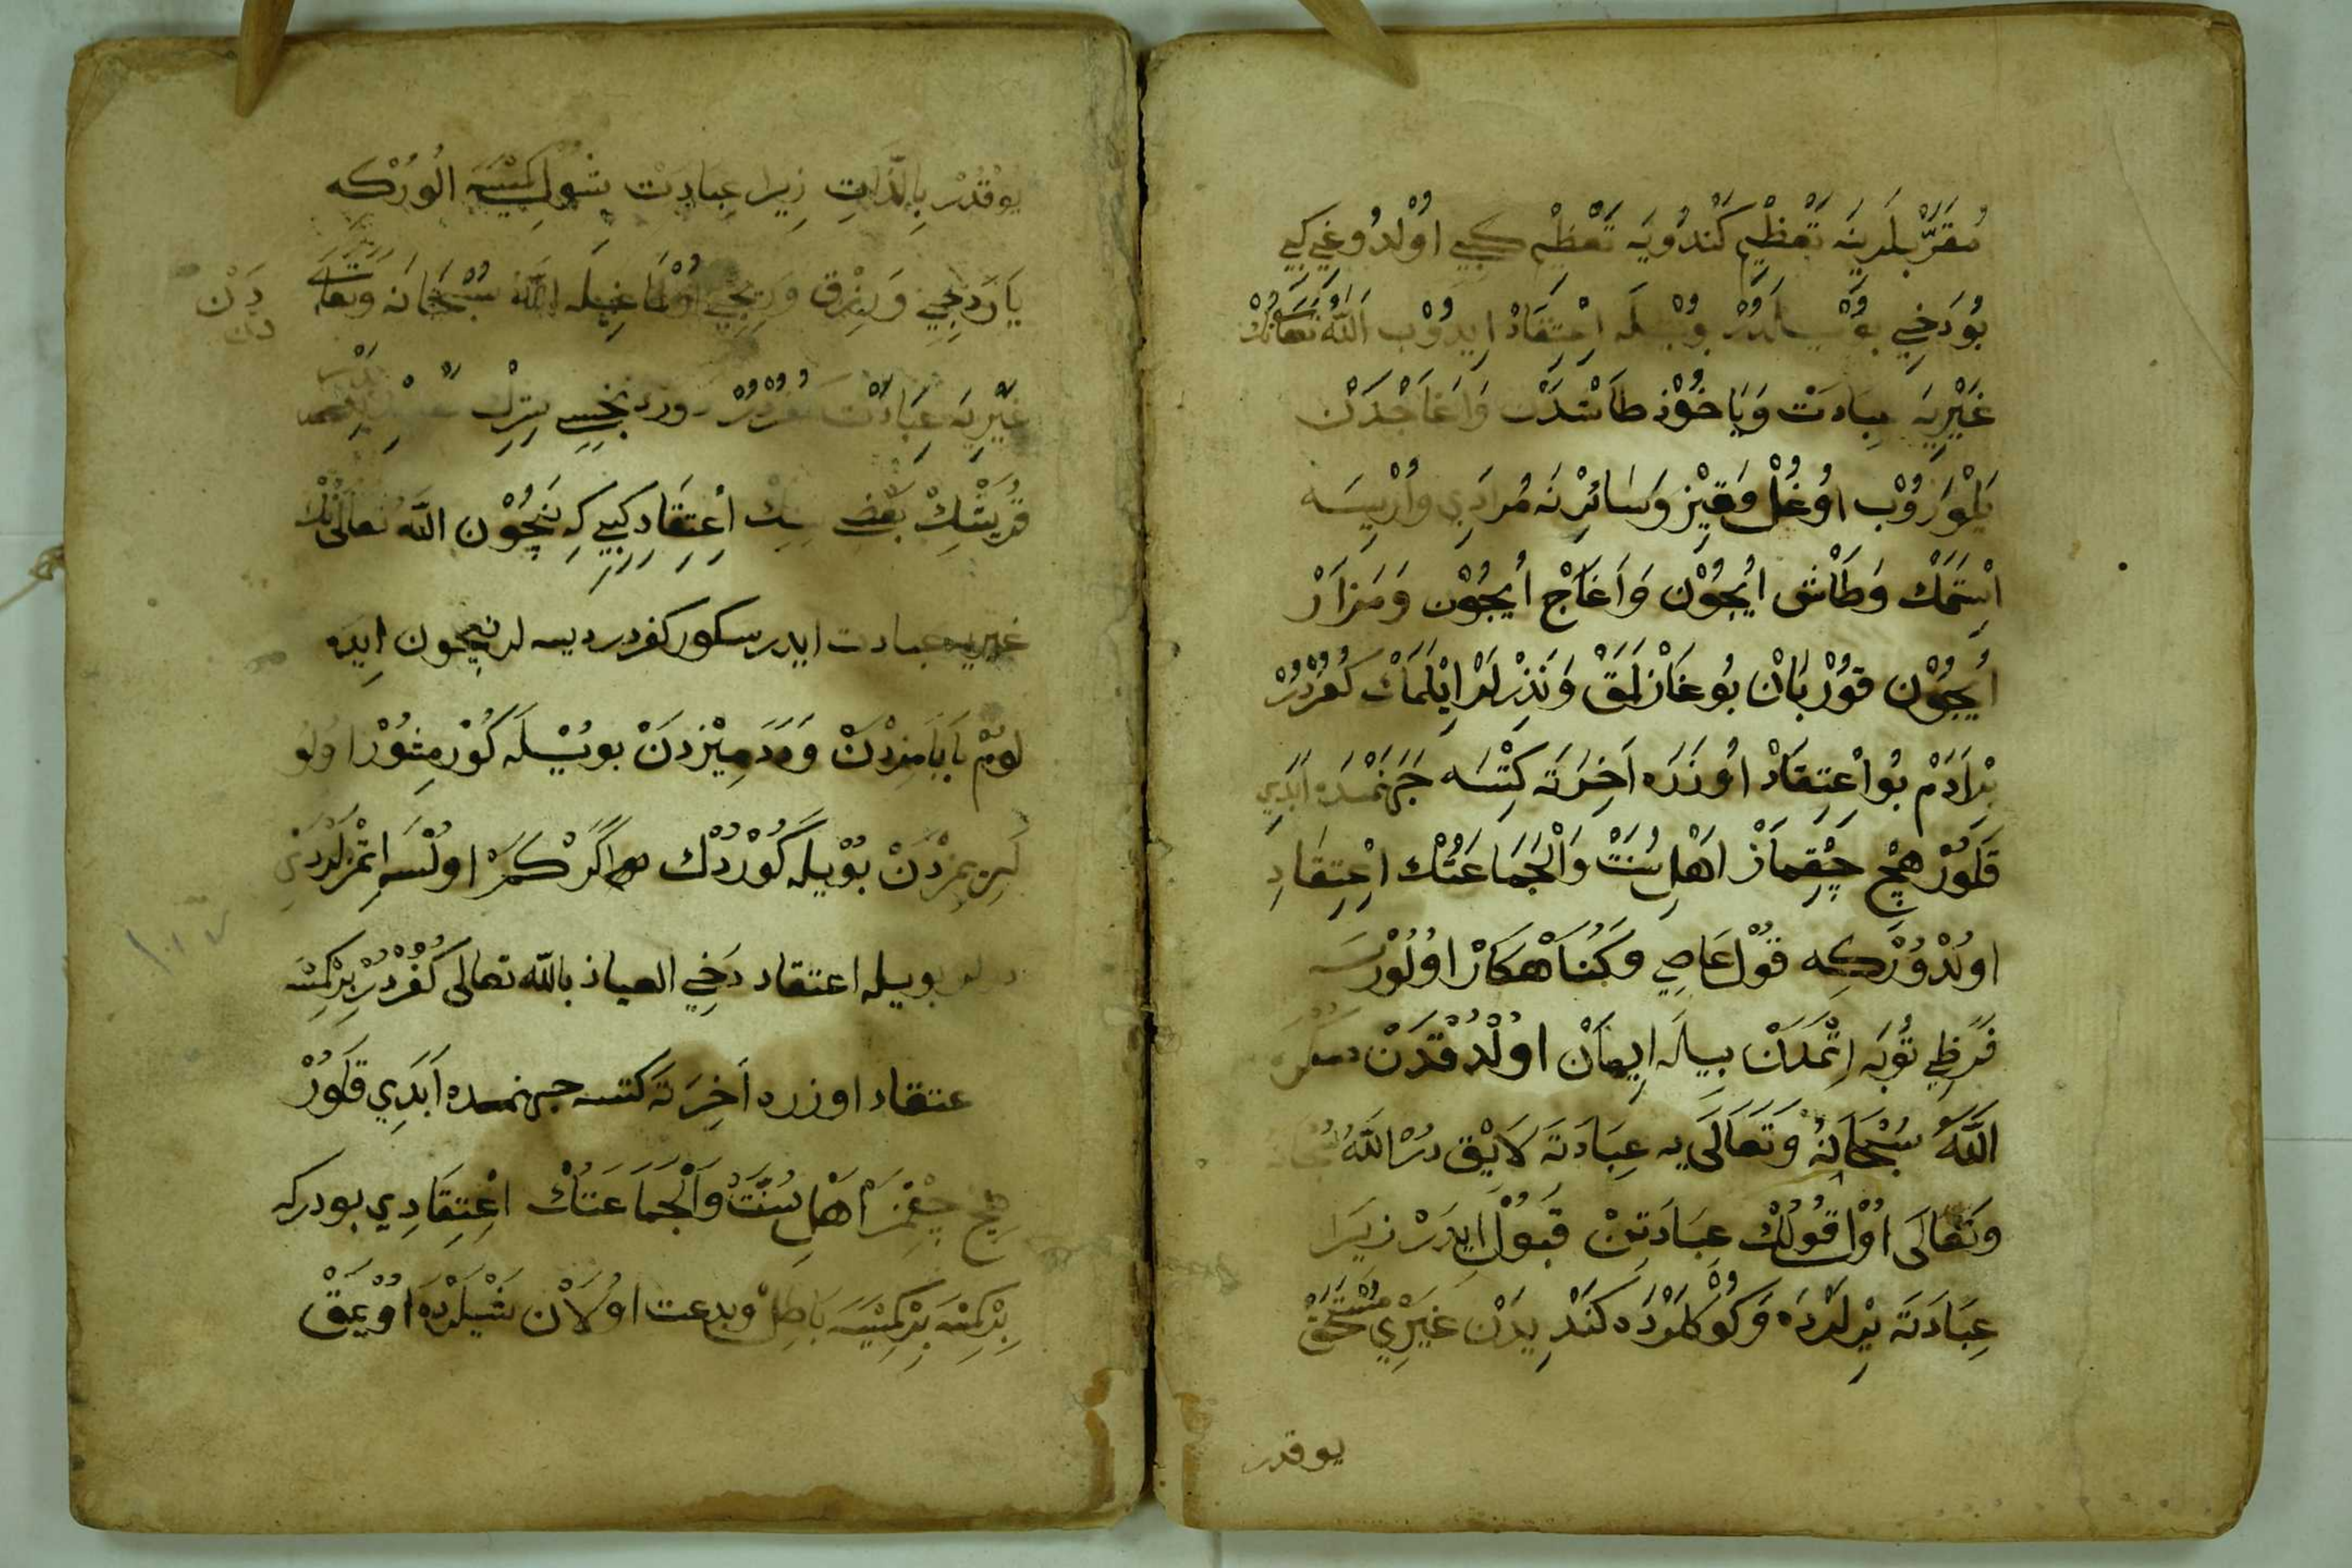 مُقَرَّبْلَرِينَه تَعْظِيْم كَنْدُويَه تَعْظِيْم كِبِي اوْلدُوغِي كِبِي
بُو دَخِي بُوْيلَدُرْ بُوْيلَه اِعْتِقَادْ ايدُوْب اَللّٰه تَعَالَىنُكْ
غَيْرِيَه عِبَادَتْ وَيَا خُوْذ طَاشْدَنْ وَاَغَاجْدَنْ
يَلْوَارُوْب اوُغُلْ وَقِيْز وَسَائِرْنَه مُرَادِي وَارْيسَه
اِسْتَمَكْ وَطَاشْ ايُچُوْن وَاَغَاجْ ايُچُوْن وَمَزَارْ
ايُچُوْن قُوْرْبَانْ بُوغَازْلَمَقْ وَنَذِرْلَرْ ايْلَمَكْ كُفْرْدُرْ
بِرْ اَدَمْ بُو اِعْتِقَادْ اوُزَرَه اَخِرَتَه كِتْسَه جَهَنَّمْدَه اَبَدِي
قَلُوْرْ هِيچْ چِقْمَازْ اَهْلِ سُنَّتْ وَالْجَمَاعَتُكْ اِعْتِقَادِ
اوُلْدُوْركِه قُوْلْ عَاصِي وَكُنَاهْكَارْ اوُلُوْرْسَه
فَرَضِي تَوْبَه اِتْمَدَنْ بِيلَه اِيمَانْ اوُلْدُقْدَنْ صُكْرَه
اللّٰه سُبْحَانَهُ وَتَعَالَى يه عِبَادَتَه لَايِقْ دُرْ اللّٰه سُبْحَانَهُ
وَتَعَالَى اوُلْ قُولُكْ عِبَادَتِنْ قَبُوْلْ ايدَرْ زِيرَا
عِبَادَتَه يِرْلَرْدَه وَكُوْكْلَرْدَه كَنْديدَنْ غَيْرِي مُسْتَحَقْ
يوقدر
يُوْقْدُرْ بِالذَّاتِ زِيرَا عِبَادَتْ شُولْ كِمْسَيَه الُورْكِه
يَارَدِجِي وَرِزْق وِرِيجِي اوُلْمَاغِيلَه اللّٰه سُبْحَانَه وَتَعَالَى
دَنْ
غَيْرِيَه عِبَادَتْ كُفْرْدُرْ
قُرَيْشُكْ بَعْضِ سِنُكْ اِعْتِقَادِ كِبِي كِه نِيچُوْن اللّٰه تَعَالَىنُكْ
غيريه عبادت ايدرسكوز كفردر ديسه لر نيچون ايده
لوُمْ بَابَامِزْدَنْ وَدَدَمِيْزدَنْ بُويْلَه كُوْرمِشُوْزْ اوُلُو
لَرِيمِزْدَنْ بُوْيلَه كُوْرْدُكْ اَكَرْ كُفْرْ اوُلْسَه اِتْمَزْلَرْدِي
ديرلر بويله اعتقاد دَخِي العياذ بالله تعالى كُفْرْدُرْ بِرْ كِمْسَه
عتقاد اوزره اَخِرَتَه كتسه جهنمده اَبَدِي قَلُوُرْ
هيچ چِقْمَزْ اَهْلِ سُنَّتْ وَالْجَمَاعَتُكْ اِعْتِقَادِي بودركه
بِرْ كِمْسَه بِرْ كِمْسَيَه بَاطِلْ وبدعت اوُلَانْ شَيْلَرْدَه اوُيْمَقْ